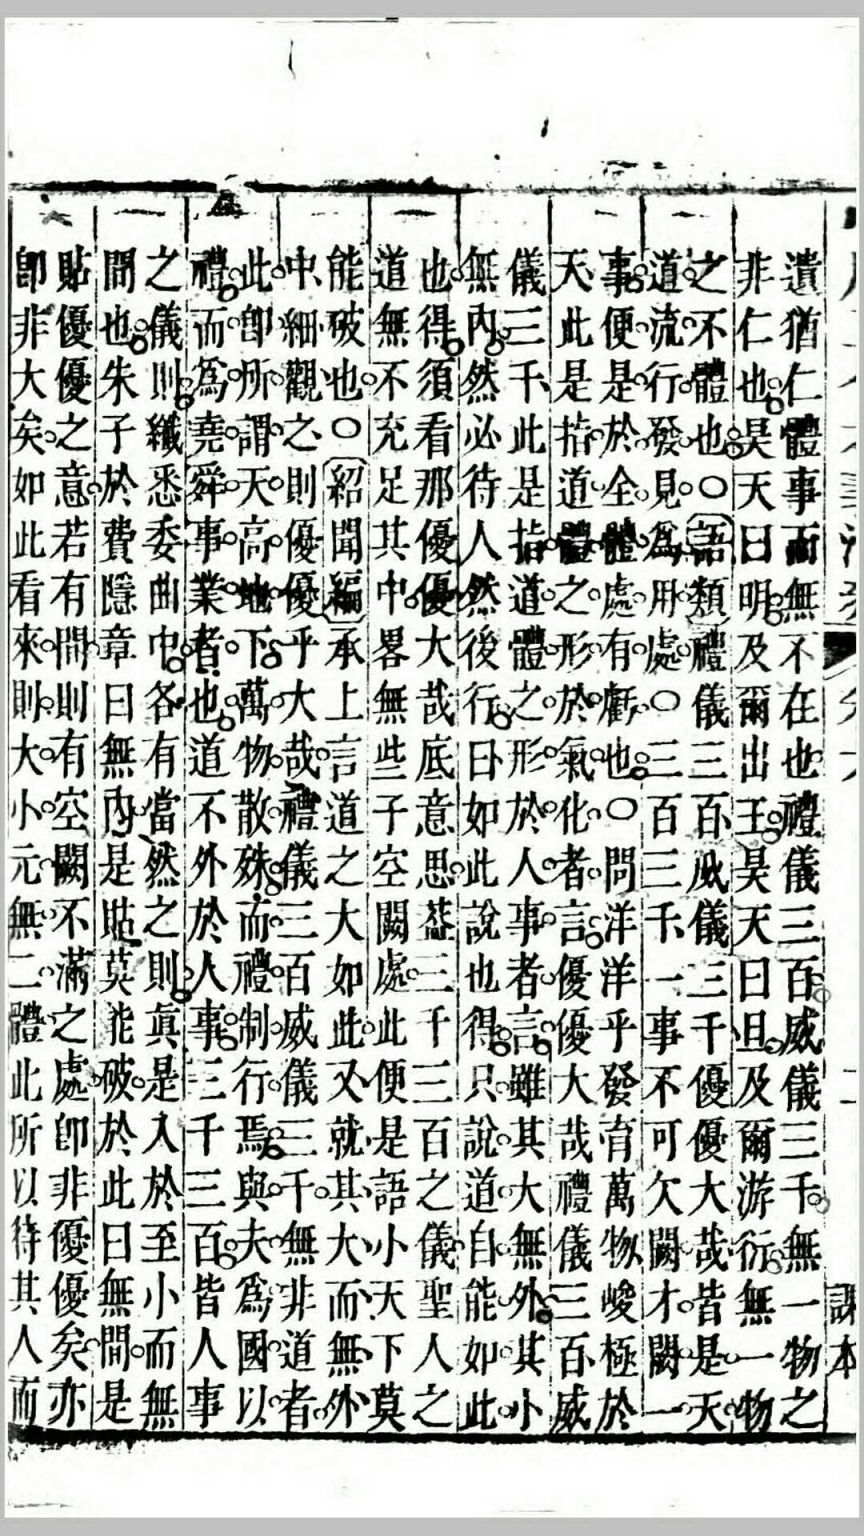 二
課本
遺猶仁體事而無不在也禮儀三百威儀三千無一物之
非仁也昊天曰明及爾出王昊天曰旦及爾游衍無一物
之不體也〇語類禮儀三百威儀三千優優大哉皆是天
道流行發見爲用處〇三百三千一事不可欠闕才闕一
事便是於全體處有虧也〇問洋洋乎發育萬物峻極於
天此是指道體之形於氣化者言優優大哉禮儀三百威
儀三千此是指道體之形於人事者言雖其大無外其小
無內然必待人然後行曰如此說也得只說道自能如此
也得須看那優優大哉底意思葢三千三百之儀聖人之
道無不充足其中畧無些子空闕處此便是語小天下莫
能破也〇紹聞編承上言道之大如此又就其大而無外
中細觀之則優優乎大哉禮儀三百威儀三千無非道者
此卽所謂天高地下萬物散殊而禮制行焉與夫爲國以
禮而爲堯舜事業者也道不外於人事三千三百皆人事
之儀則纖悉委曲中各有當然之則眞是入於至小而無
間也朱子於費隱章曰無內是貼莫能破於此曰無間是
貼優優之意若有間則有空闕不滿之處卽非優優矣亦
卽非大矣如此看來則大小元無二體此所以待其人而